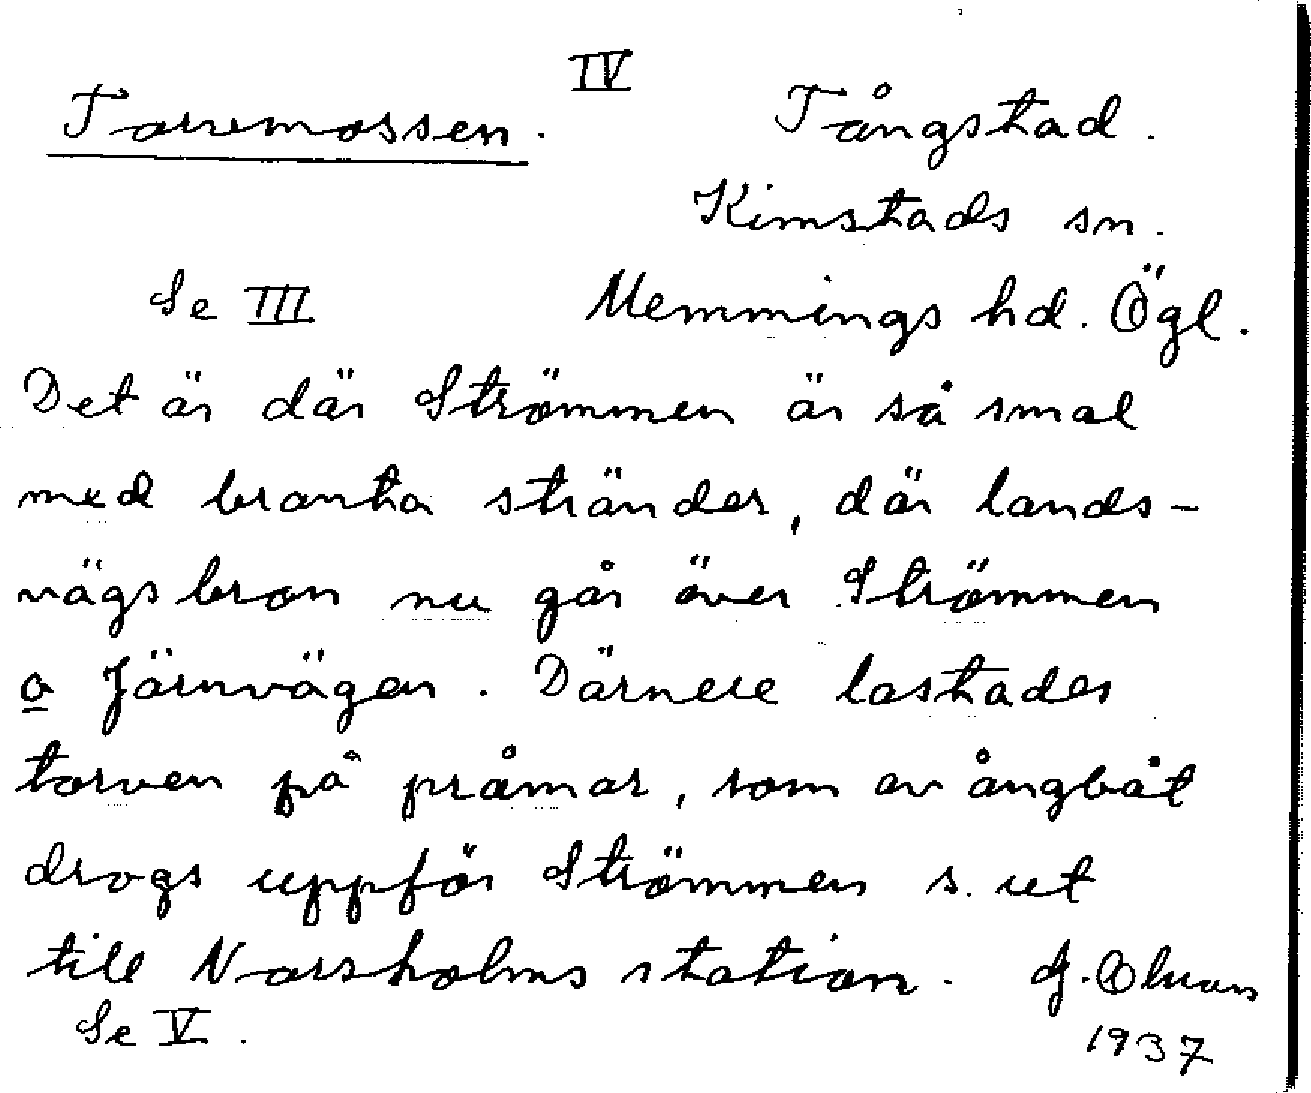 IV
Torvmossen. Tångstad.
Kimstads sn.
Se III Memmings hd. Ögl.
Det är där Strömmen är så smal
med branta stränder, där lands-
vägsbron nu går över Strömmen
o Järnvägen. Därnere lastades
torven på pråmar, som av ångbåt
drogs uppför Strömmen s. ut
till Norsholms station. J.
Se V. 1937